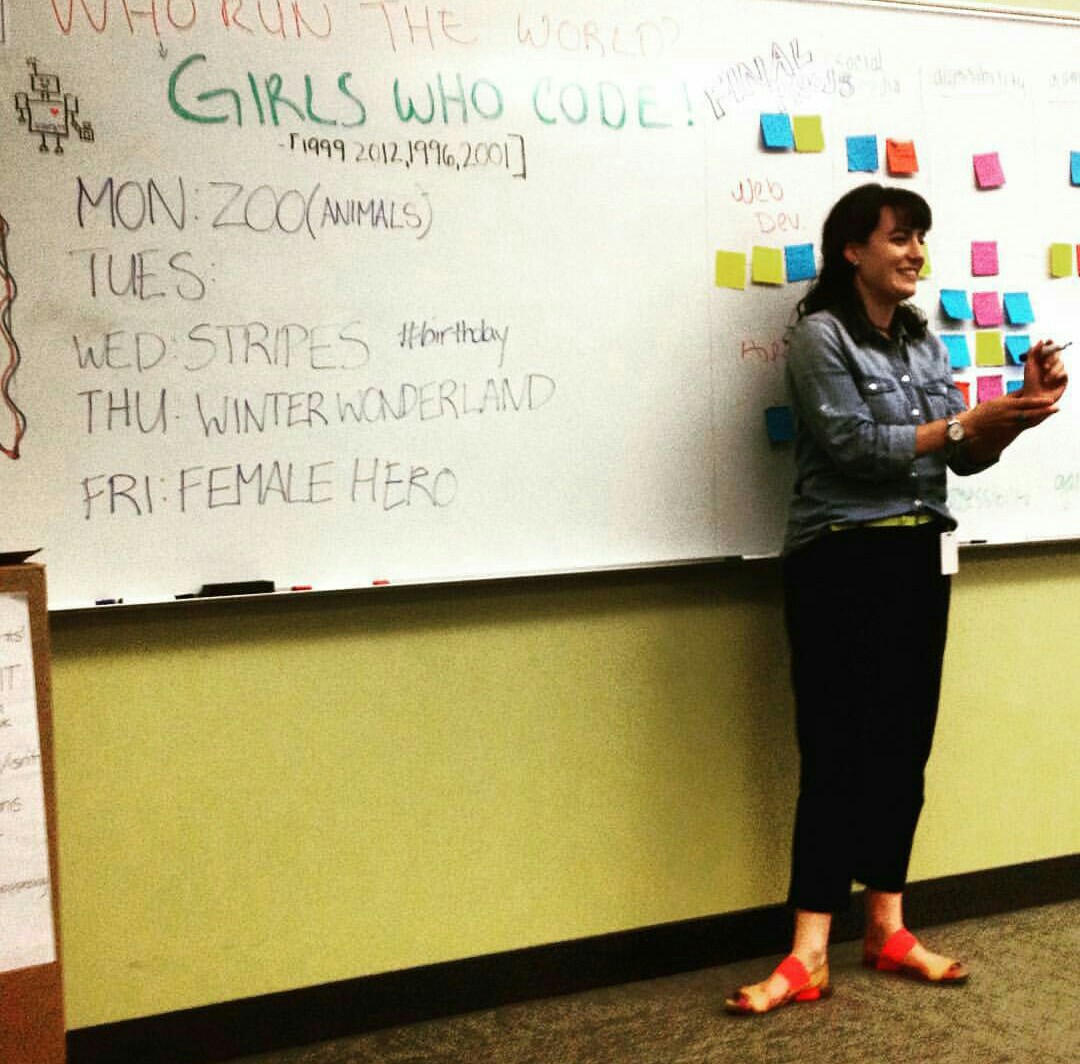 WHO RUN THE WORLD?
GIRLS WHO CODE!
-[1999 2012,1996,2001]
MON: ZOO(ANIMALS)
TUES:
WED: STRIPES #birthday
THU: WINTER WONDERLAND
FRI: FEMALE HERO
FINAL
social
Web
Dev.
IT